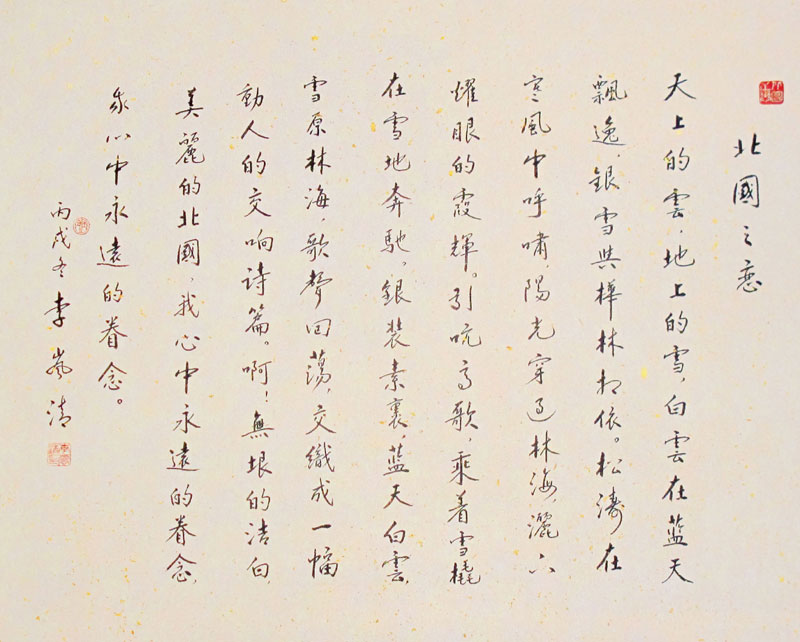 北國之恋
天上的雲,地上的雪,白雲在藍天
飄逸,銀雪與樺林相依。松濤在
寒風中呼嘯,陽光穿過林海,灑下
耀眼的霞輝。引吭高歌,乘着雪橇
在雪地奔馳。銀裝素裹,藍天白雲,
雪原林海,歌聲回蕩,交織成一幅
動人的交响詩篇。啊!無垠的洁白,
美麗的北國,我心中永遠的眷念,
我心中永遠的眷念。
丙戌冬 李嵐清